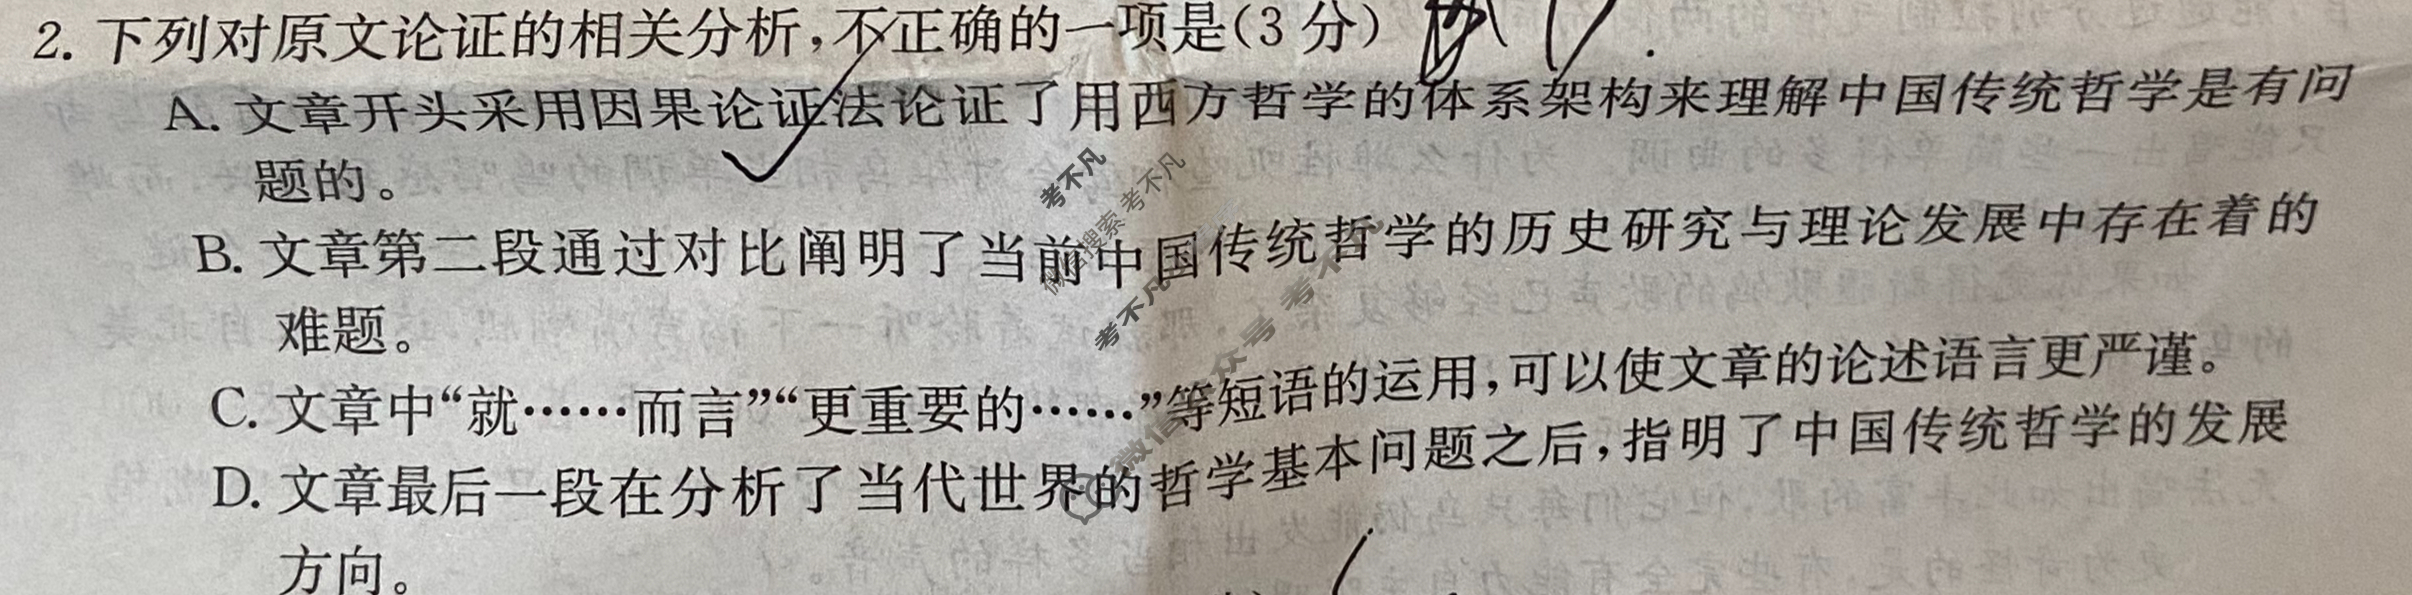 2. 下列对原文论证的相关分析，不正确的一项是（3 分）
A. 文章开头采用因果论证法论证了用西方哲学的体系架构来理解中国传统哲学是有问
题的。
B. 文章第二段通过对比阐明了当前中国传统哲学的历史研究与理论发展中存在着的
难题。
C. 文章中“就……而言”“更重要的……”等短语的运用，可以使文章的论述语言更严谨。
D. 文章最后一段在分析了当代世界的哲学基本问题之后，指明了中国传统哲学的发展
方向。
考不凡
微信搜索 考不凡
考不凡